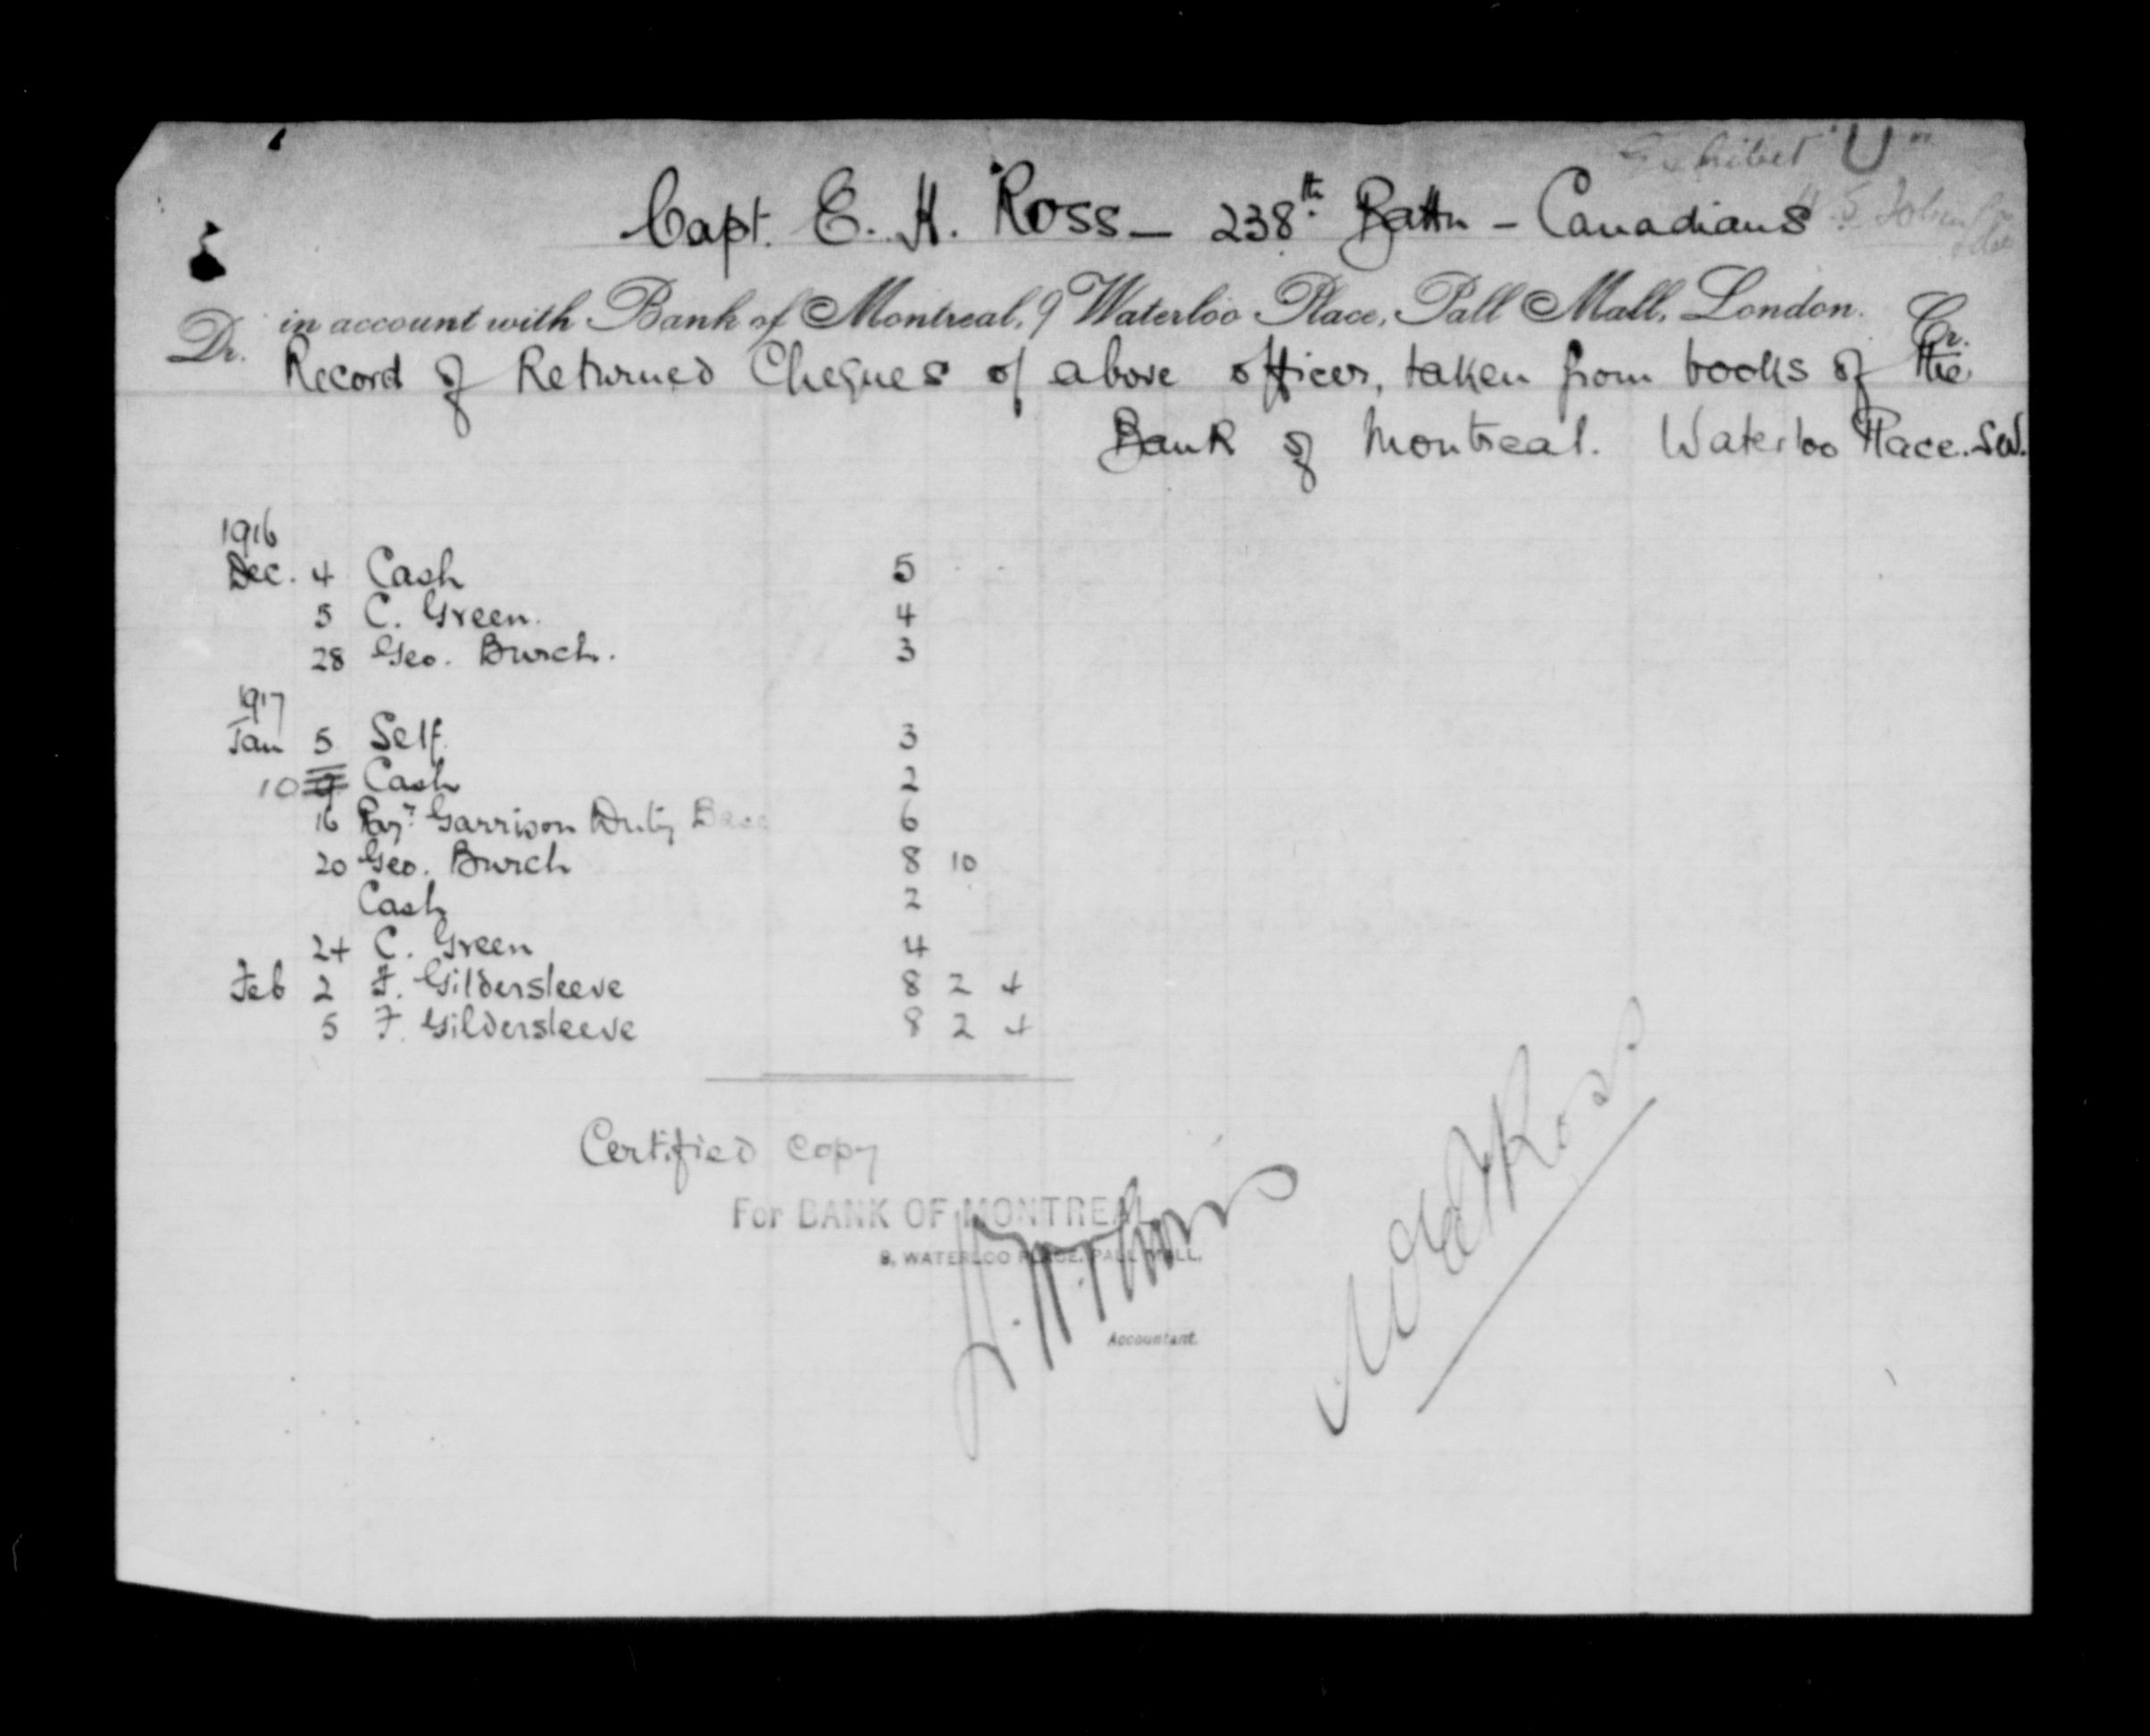 Exhibit "U"
Capt. E. H. Ross – 238th Battn – Canadians
Dr. in account with Bank of Montreal, 9 Waterloo Place, Pall Mall, London. Cr.
Record of Returned Cheques of above officer, taken from books of the
Bank of Montreal. Waterloo Place. S.W.
1916
Dec. 4 Cash 5
5 C. Green. 4
28 Geo. Burch. 3
1917
Jan 5 Self. 3
10 9 Cash 2
16 Payr Garrison Duty 6
20 Geo. Burch 8 10
Cash 2
24 C. Green 4
Feb 2 F. Gildersleeve 8 2 4
5 F. Gildersleeve 8 2 4
Certified copy
For BANK OF MONTREAL
9, WATERLOO PLACE, PALL MALL.
Accountant.
Ross